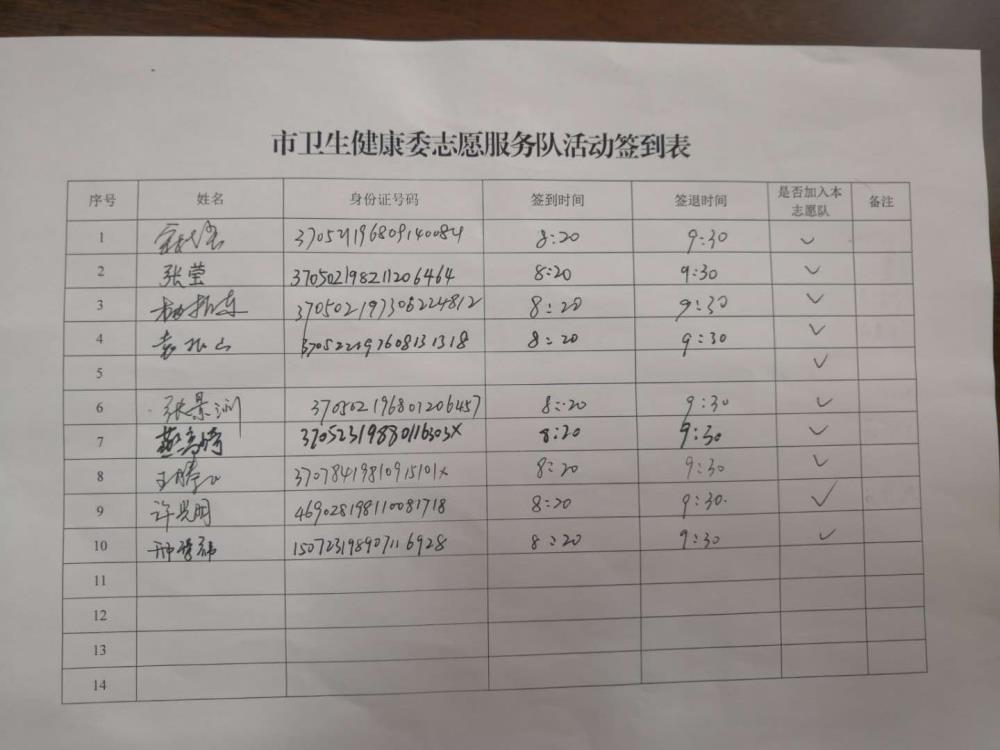 市卫生健康委志愿服务队活动签到表
序号 姓名 身份证号码 签到时间 签退时间 是否加入本志愿队 备注
1 370521196809140084 8:20 9:30 ✓
2 张莹 370502198211206464 8:20 9:30 ✓
3 370502197306224812 8:20 9:30 ✓
4 8:20 9:30 ✓
5 ✓
6 张景洲 370502196801206457 8:20 9:30 ✓
7 37052319880116303X 8:20 9:30 ✓
8 37078419810915101X 8:20 9:30 ✓
9 许兴明 469028198110081718 8:20 9:30 ✓
10 150723198907116928 8:20 9:30 ✓
11
12
13
14